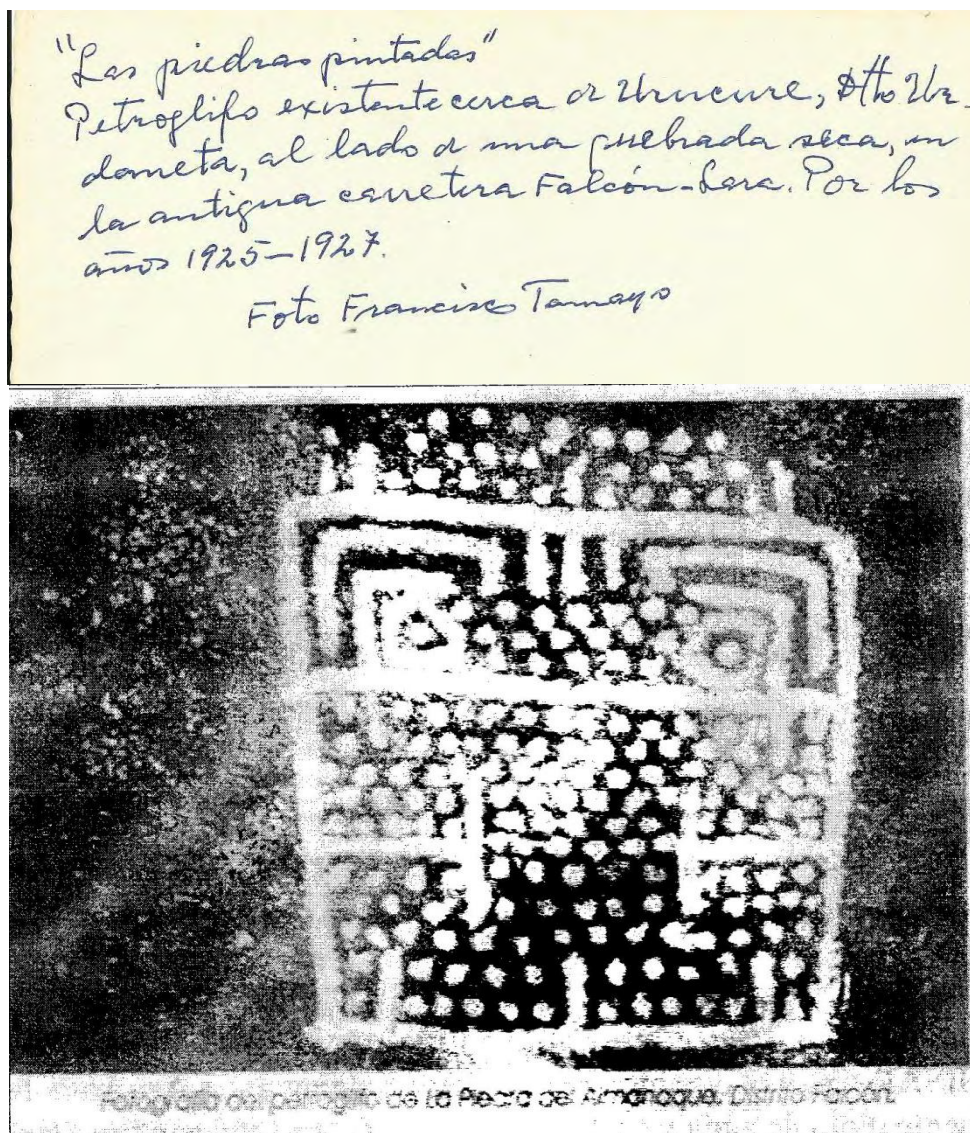 "Las piedras pintadas"
Petroglifo existente cerca de Urucure, Dtto Ur-
daneta, al lado de una quebrada seca, en
la antigua carretera Falcón-Lara. Por los
años 1925-1927.
Foto Francisco Tamayo
Fotografía del petroglifo de La Piedra del Almanaque. Distrito Falcón.